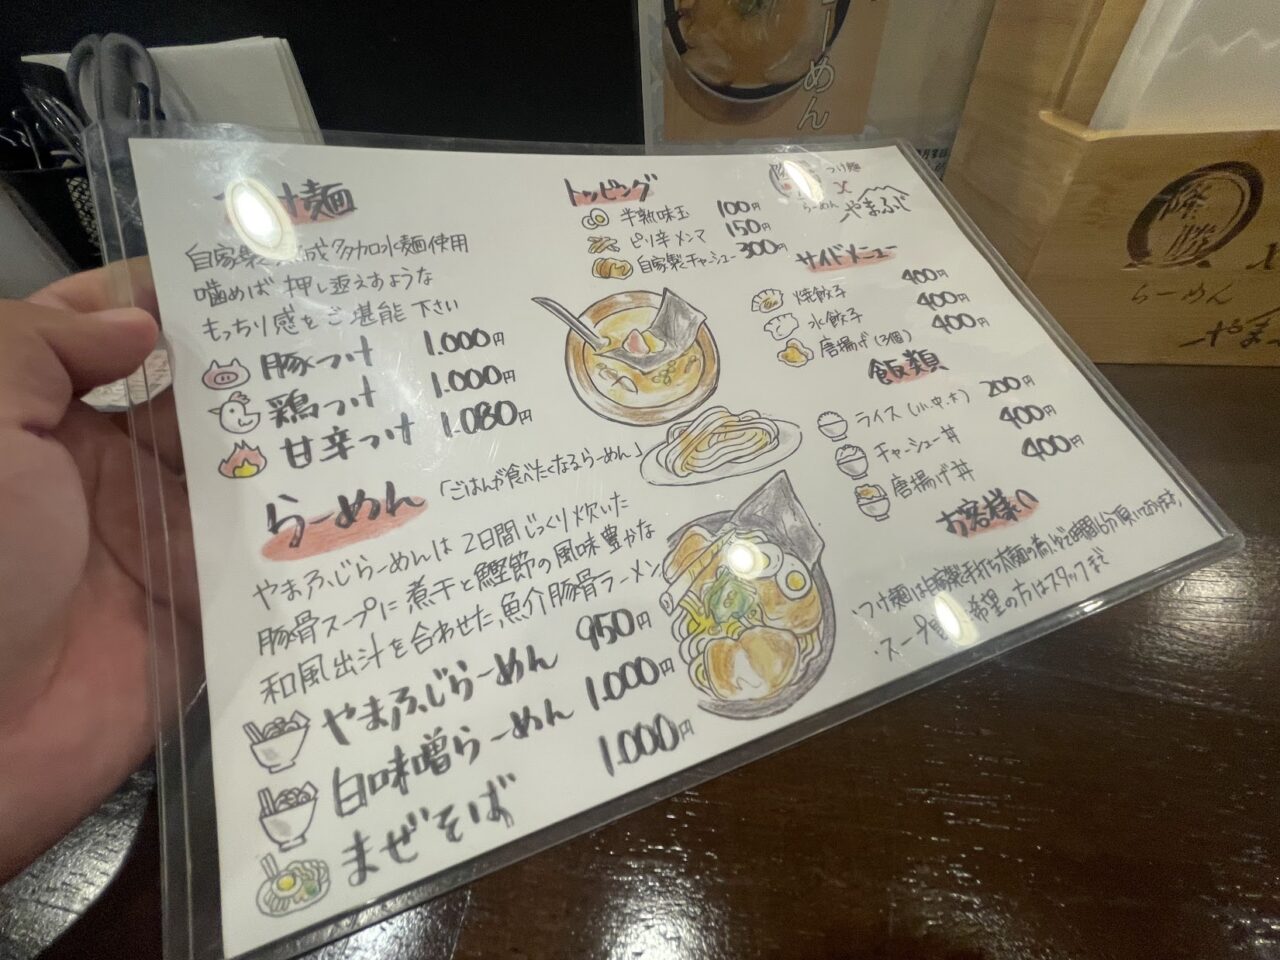 け麺
自家製 成多加水麺使用
噛めば押し返えすような
もっちり感をご堪能下さい
豚つけ 1.000円
鶏つけ 1.000円
甘辛つけ 1.080円
らーめん 「ごはんが食べたくなるらーめん」
やまふじらーめんは2日間じっくり炊いた
豚骨スープに煮干と鰹節の風味豊かな
和風出汁を合わせた、魚介豚骨ラーメン
やまふじらーめん 950円
白味噌らーめん 1.000円
まぜそば 1.000円
トッピング
半熟味玉 100円
ピリ辛メンマ 150円
自家製チャーシュー 300円
つけ麺
×
らーめん やまふじ
サイドメニュー
焼餃子 400円
水餃子 400円
唐揚げ(3個) 400円
飯類
ライス(小、中、大) 200円
チャーシュー丼 400円
唐揚げ丼 400円
お客様い
・つけ麺は自家製手打ち太麺の為、ゆで時間16分頂いております。
・スープ 希望の方はスタッフまで
ーめん
隆勝
らーめん
やま